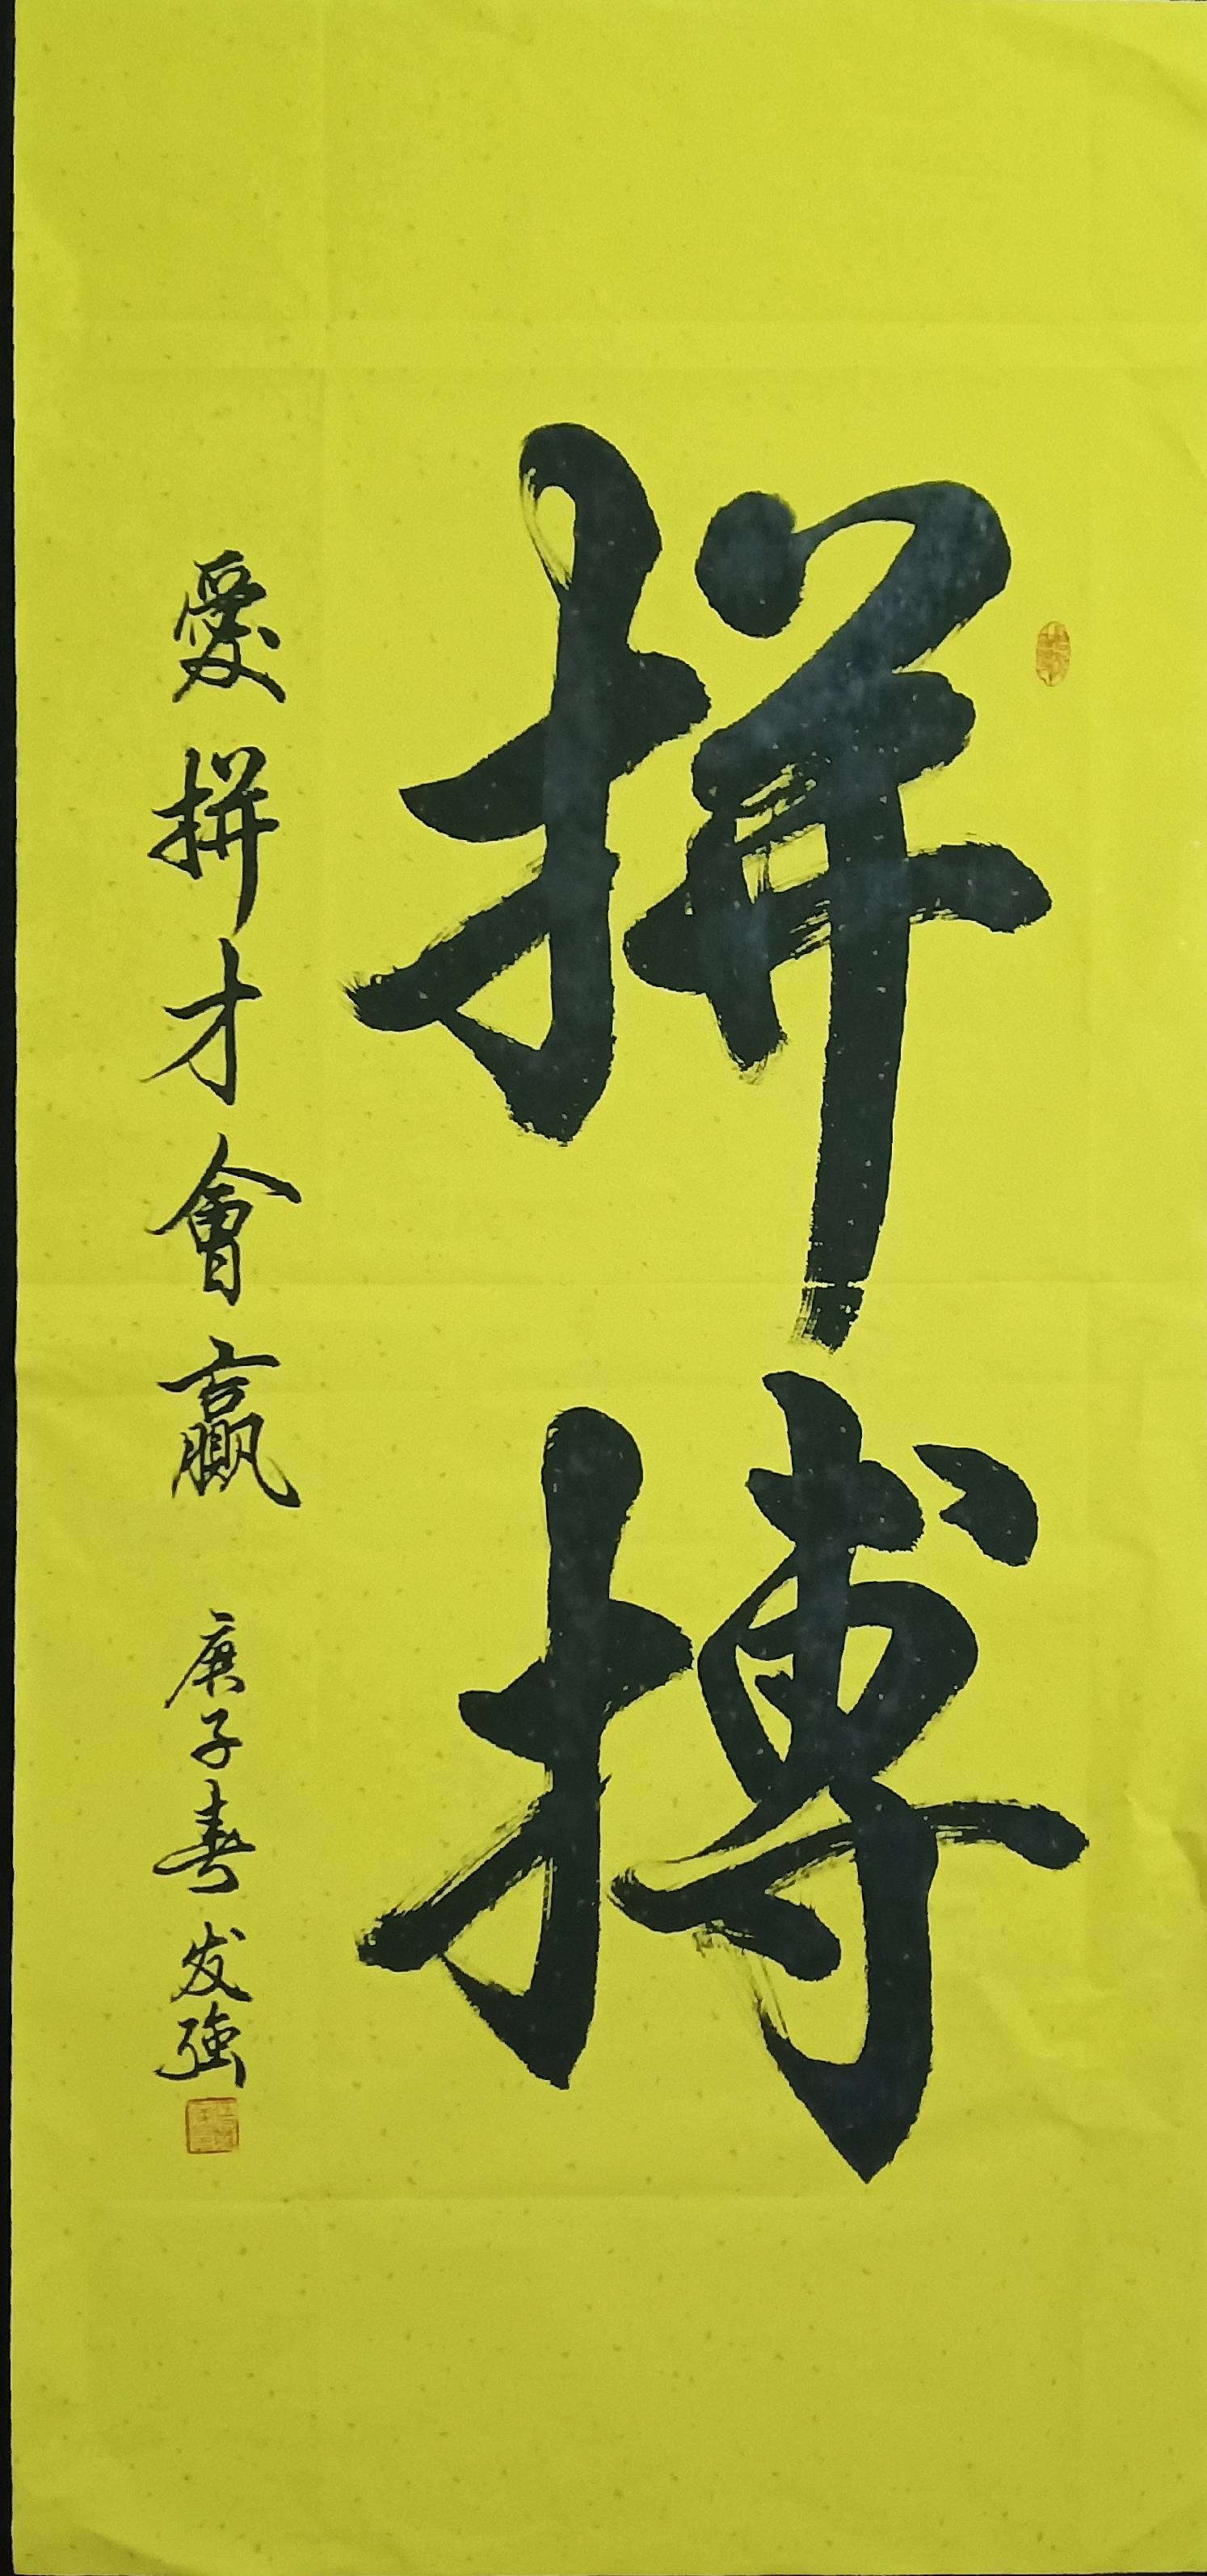 拼搏
愛拼才會贏 庚子春 发強